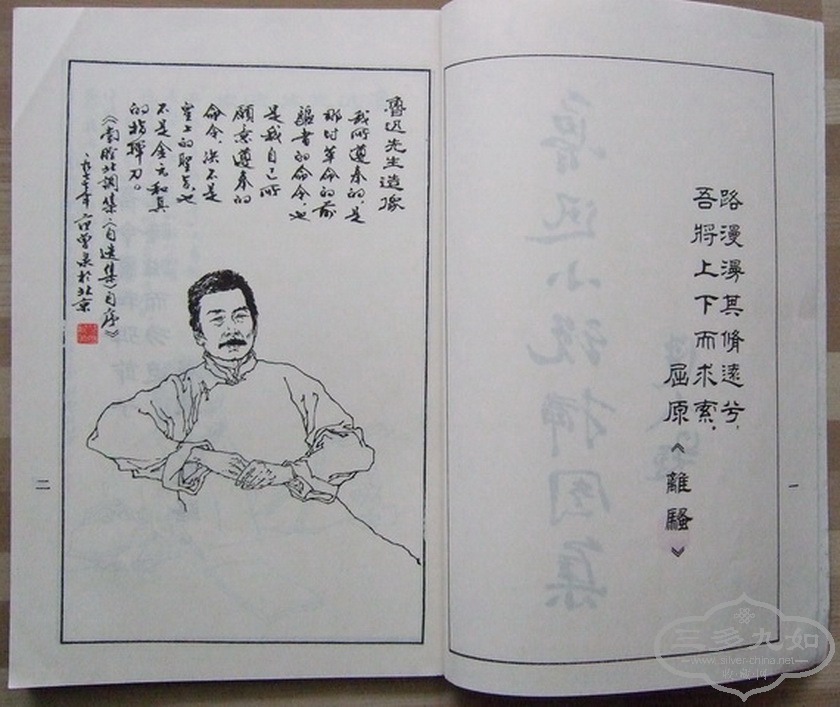 路漫漫其脩遠兮，
吾將上下而求索，
屈原《離騷》
一
魯迅先生造像
我所遵奉的，是
那时革命的前
驅者的命令，也
是我自己所
願意遵奉的
命令，決不是
皇上的聖旨，也
不是金元和真
的指揮刀。
《南腔北調集（自选集）自序》
一九七七年 范曾彔於北京
二
三多九如
www.silver-china.net
收藏网